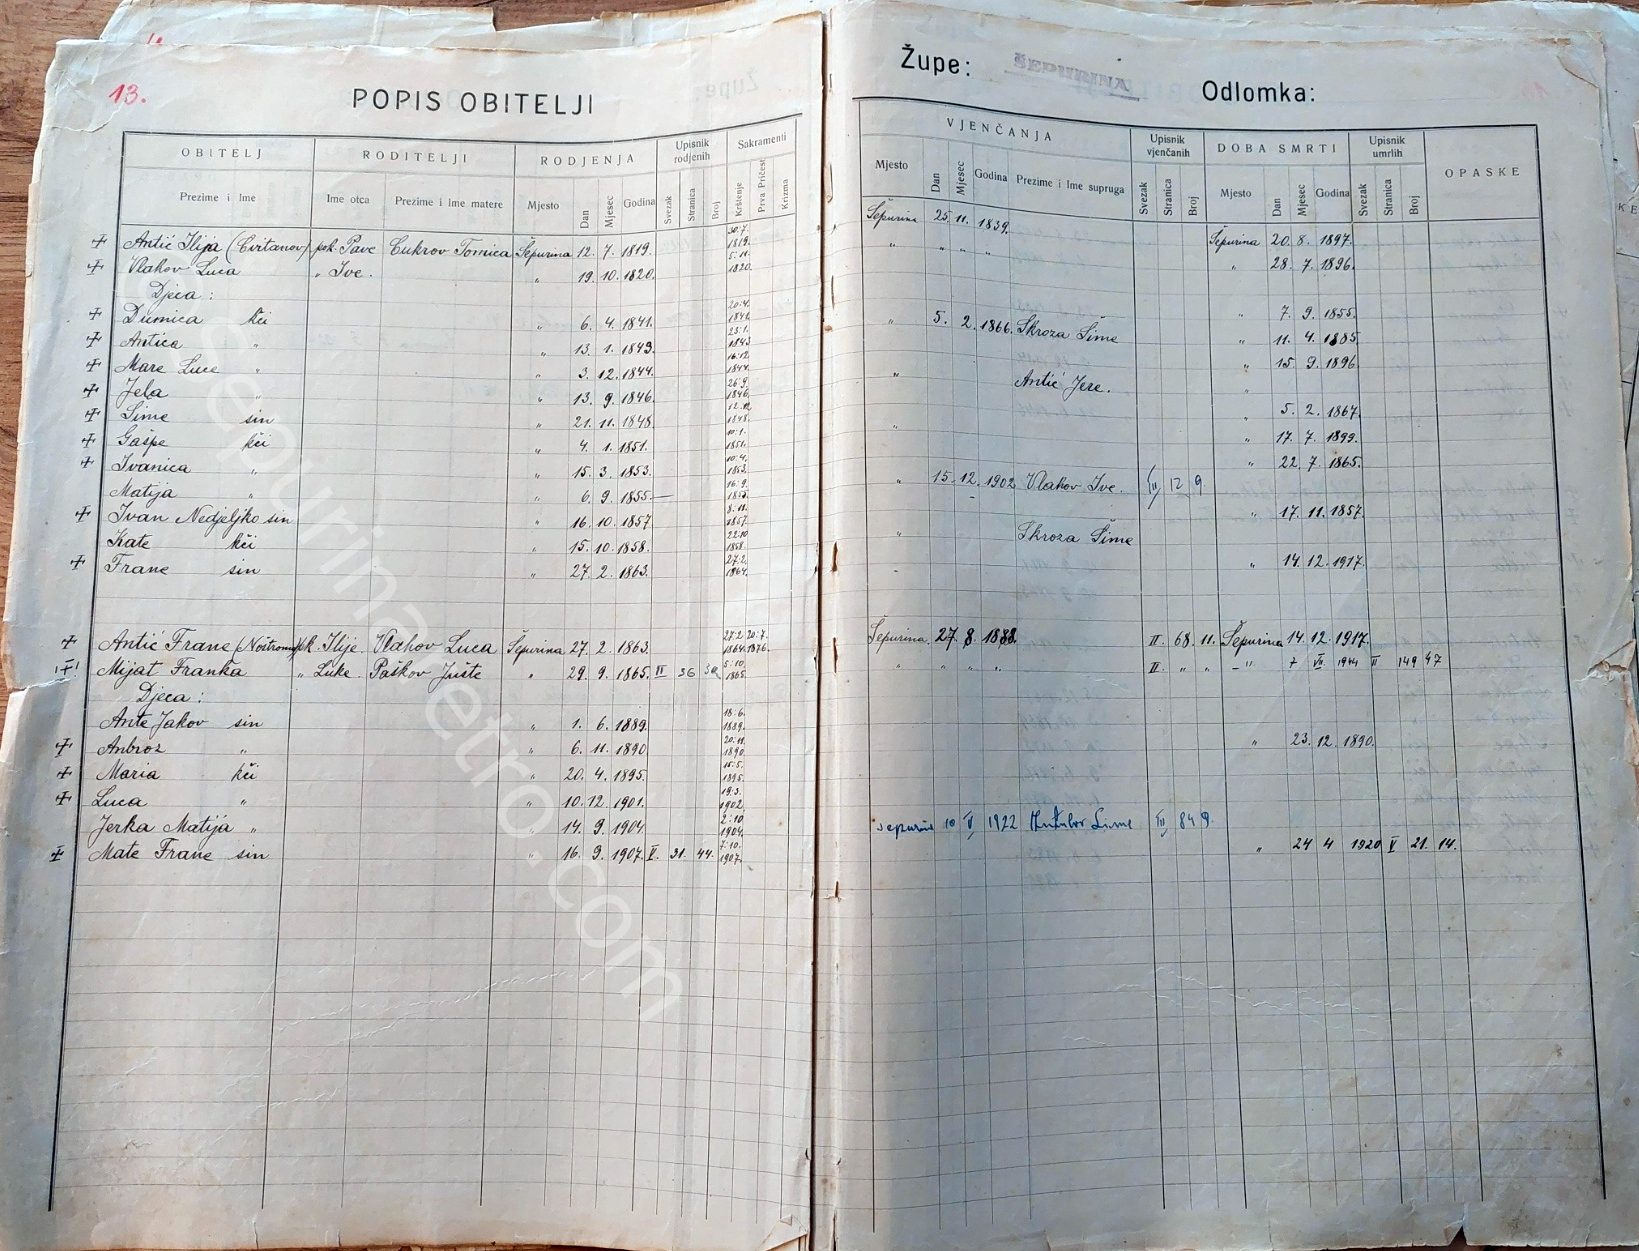 13.
POPIS OBITELJI
Župe: ŠEPURINA Odlomka:
OBITELJ RODITELJI RODJENJA Upisnik rodjenih Sakramenti
Prezime i Ime Ime otca Prezime i Ime matere Mjesto Dan Mjesec Godina Svezak Stranica Broj Krštenje Prva Pričest Krizma
VJENČANJA Upisnik vjenčanih DOBA SMRTI Upisnik umrlih OPASKE
Mjesto Dan Mjesec Godina Prezime i Ime supruga Svezak Stranica Broj Mjesto Dan Mjesec Godina Svezak Stranica Broj
Antić Ilija (Cvitanov) pok. Pave Cukrov Tomica Šepurina 12. 7. 1819. 30.7. 1819. Šepurina 25. 11. 1839. Šepurina 20. 8. 1897.
Vlahov Luca " Ive. " 19. 10. 1820. 5.11. 1820. " " " " " 28. 7. 1896.
Djeca:
Dumica kći " 6. 4. 1841. 20.4. 1841. " 7. 9. 1855.
Antica " " 13. 1. 1843. 23.1. 1843 " 5. 2. 1866. Skroza Šime " 11. 4. 1885
Mare Luce " " 3. 12. 1844. 16.12 1844. " 15. 9. 1896
Jela " " 13. 9. 1846. 26.9. 1846. " Antić Jere. "
Šime sin " 21. 11. 1848. 12.12. 1848. " 5. 2. 1867.
Gašpe kći " 4. 1. 1851. 10.1. 1851. " " 17. 7. 1899.
Ivanica " " 15. 3. 1853. 10.4. 1853. " 22. 7. 1865.
Matija " " 6. 9. 1855. 16.9. 1855. " 15. 12. 1902 Vlahov Ive. III 12 9
Ivan Nedjeljko sin " 16. 10. 1857. 8.11. 1857. " 17. 11. 1857.
Kate kći " 15. 10. 1858. 22.10 1858. " Skroza Šime
Frane sin " 27. 2. 1863. 27.2. 1864. " " 14. 12. 1917.
Antić Frane (Noštromo) pk. Ilije Vlahov Luca Šepurina 27. 2. 1863. 27.2. 1864. 20.7. 1876. Šepurina 27. 8. 1888. II. 68. 11. Šepurina 14. 12. 1917.
Mijat Franka " Luke Paškov Jušte " 29. 9. 1865. II 36 5.10. 1865. " " " " II. " " " 7 VII. 1944 II 149 47
Djeca:
Ante Jakov sin " 1. 6. 1889. 18.6. 1889.
Anbroz " " 6. 11. 1890. 20.11. 1890. " 23. 12. 1890.
Maria kći " 20. 4. 1895. 15.5. 1895.
Luca " " 10. 12. 1901. 19.3. 1902.
Jerka Matija " " 14. 9. 1904. 2.10 1904. Šepurina 10 V 1922 Šime III 84 9
Mate Frane sin " 16. 9. 1907. V. 31. 44. 7.10. 1907. " 24 4 1920 V 21. 14.
sepurinaretro.com